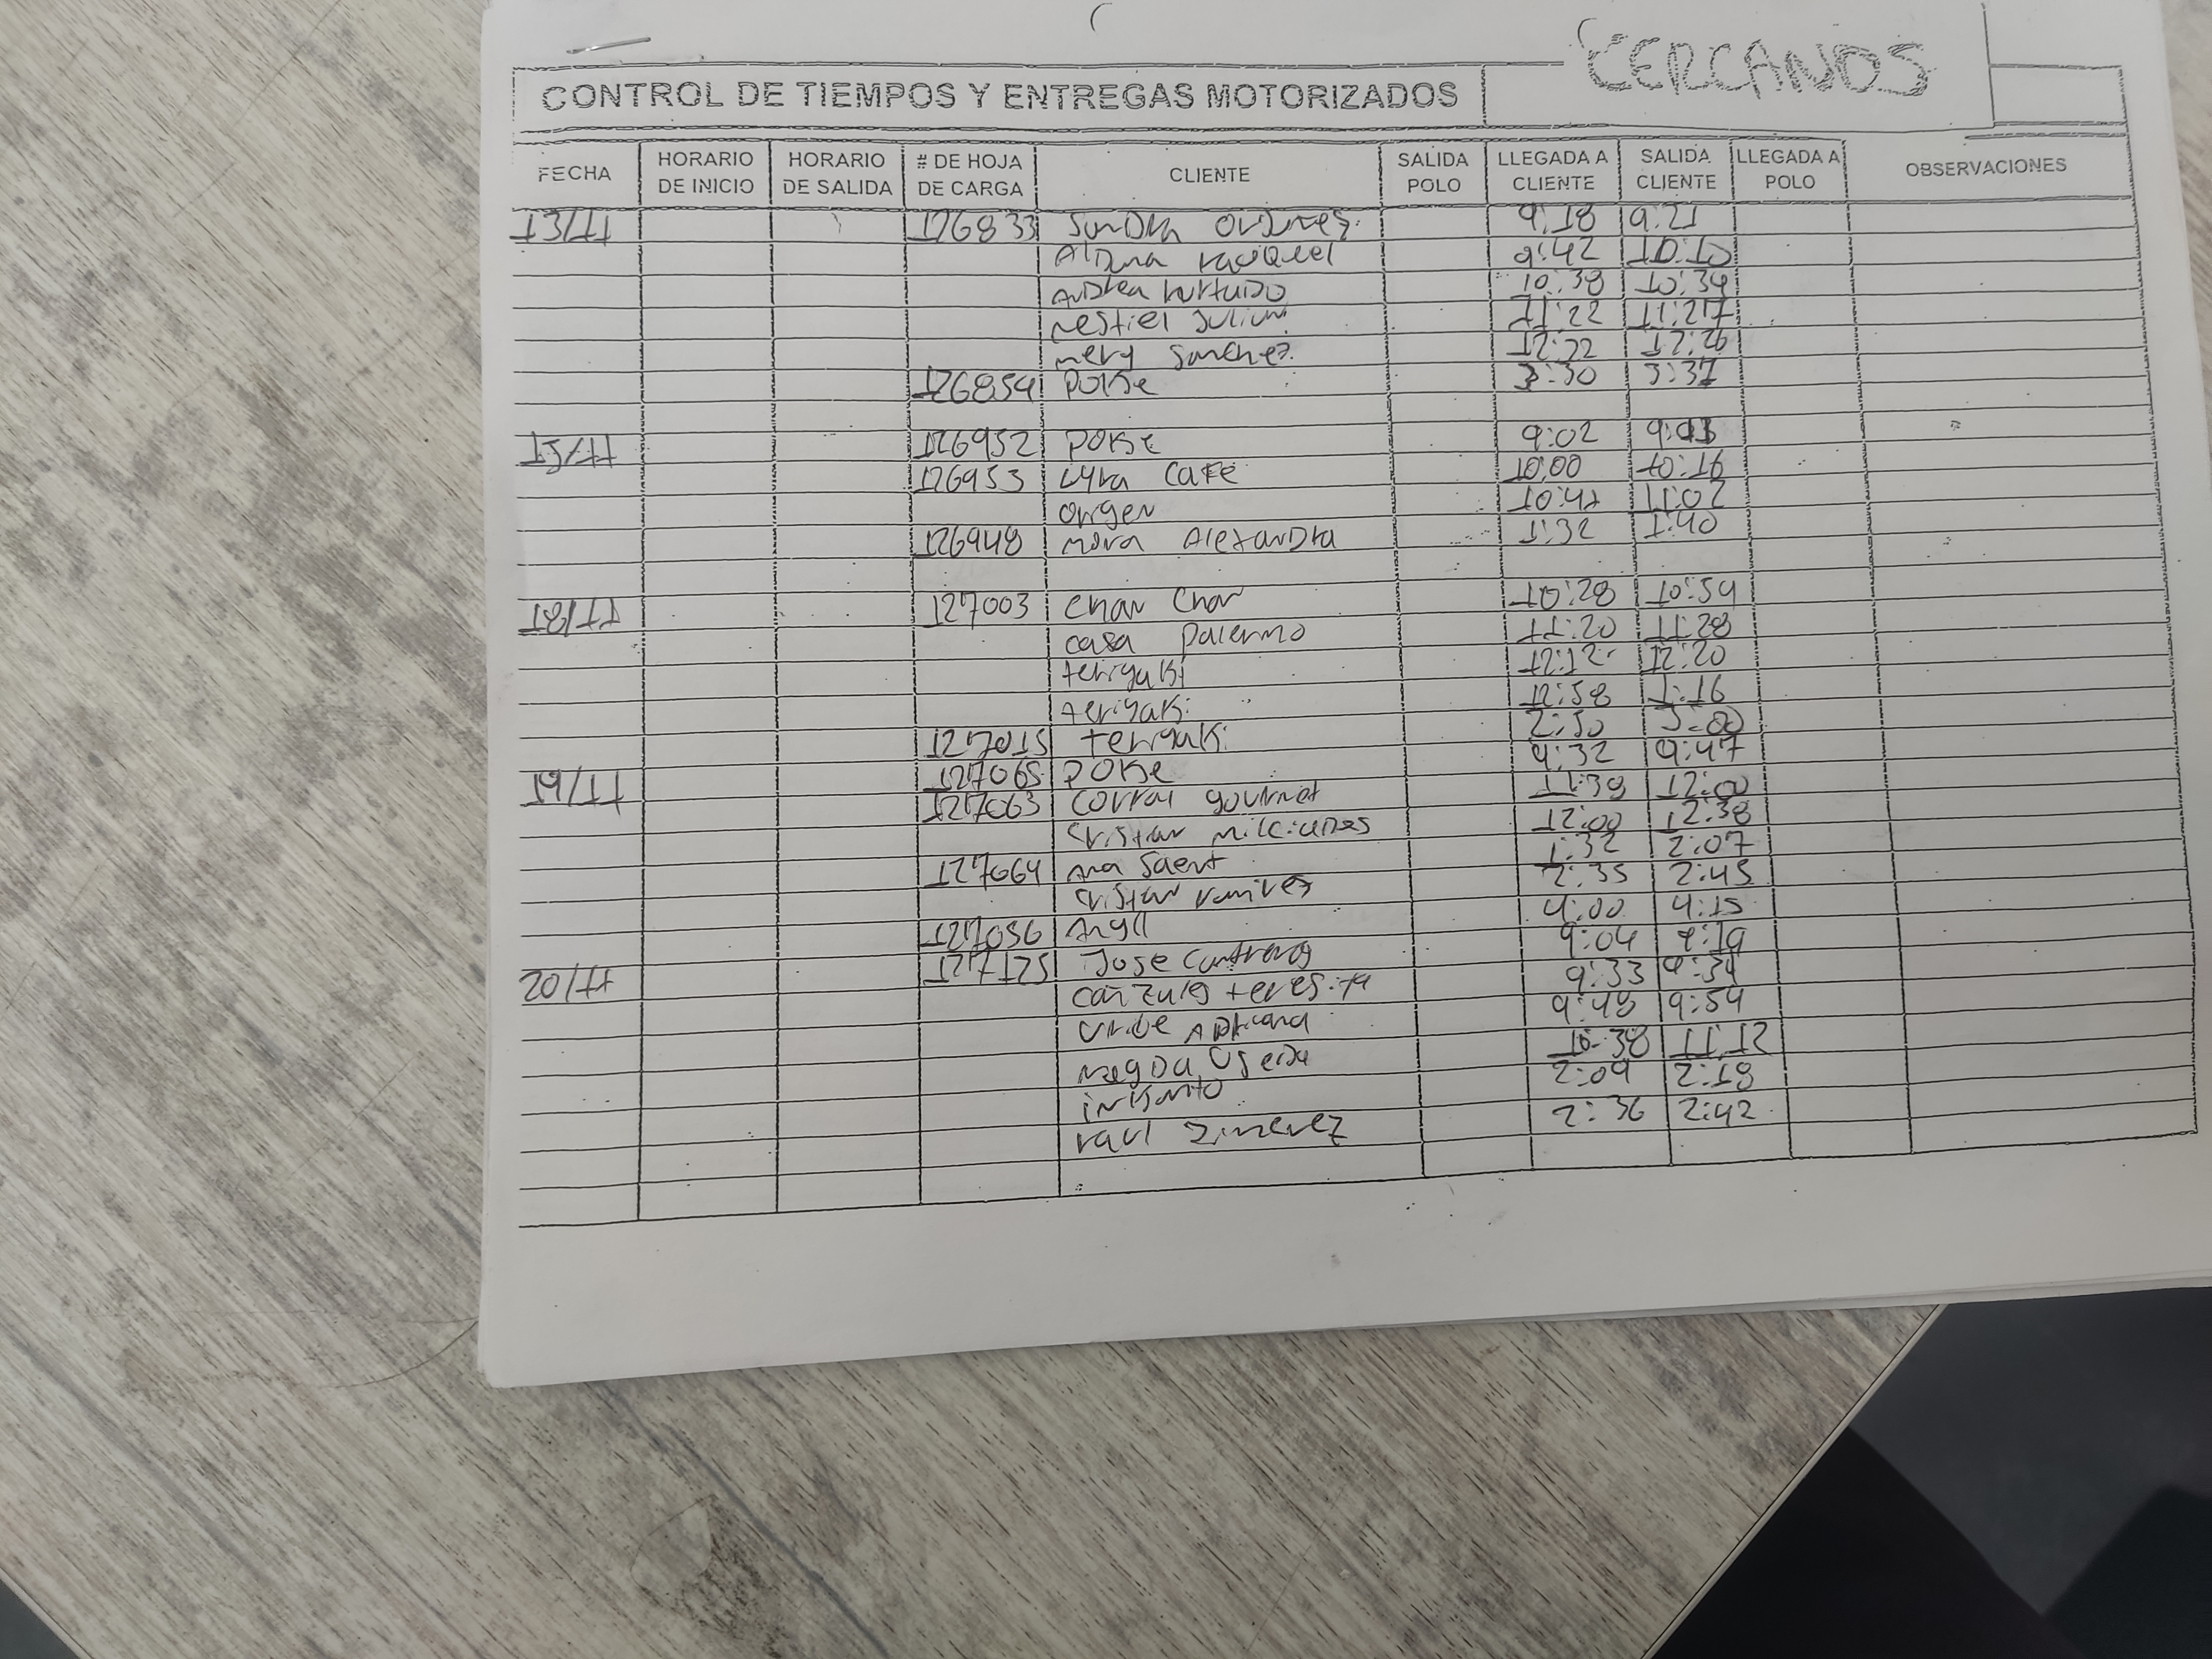 CERCANOS
CONTROL DE TIEMPOS Y ENTREGAS MOTORIZADOS
FECHA HORARIO DE INICIO HORARIO DE SALIDA # DE HOJA DE CARGA CLIENTE SALIDA POLO LLEGADA A CLIENTE SALIDA CLIENTE LLEGADA A POLO OBSERVACIONES
13/11 126833 Sandra 9:18 9:21
9:42 10:10
Andrea hurtado 10:38 10:39
Julian 11:22 11:27
mery Sanchez 12:22 12:26
126854 POKe 3:30 3:37
15/11 126952 POKe 9:02
126953 Lyra Cafe 10:00 10:16
origen 10:47 11:02
126948 mora AlexanDra 1:32 1:40
18/11 127003 Chan Chan 10:28 10:59
casa palermo 11:20 11:28
teriyaKi 12:12 12:20
teriyaKi 12:58 1:16
127015 teriyaKi 2:50 3:00
19/11 127065 POKe 9:32 9:47
127063 Corral gourmet 11:38 12:00
Cristian 12:00 12:38
127064 Ana 1:32 2:07
Cristian ramirez 2:35 2:45
127056 4:00 4:15
20/11 127125 Jose Contreras 9:04 9:19
teresita 9:33 9:34
Uribe ADriana 9:48 9:54
10:38 11:12
2:09 2:18
raul Jimenez 2:36 2:42